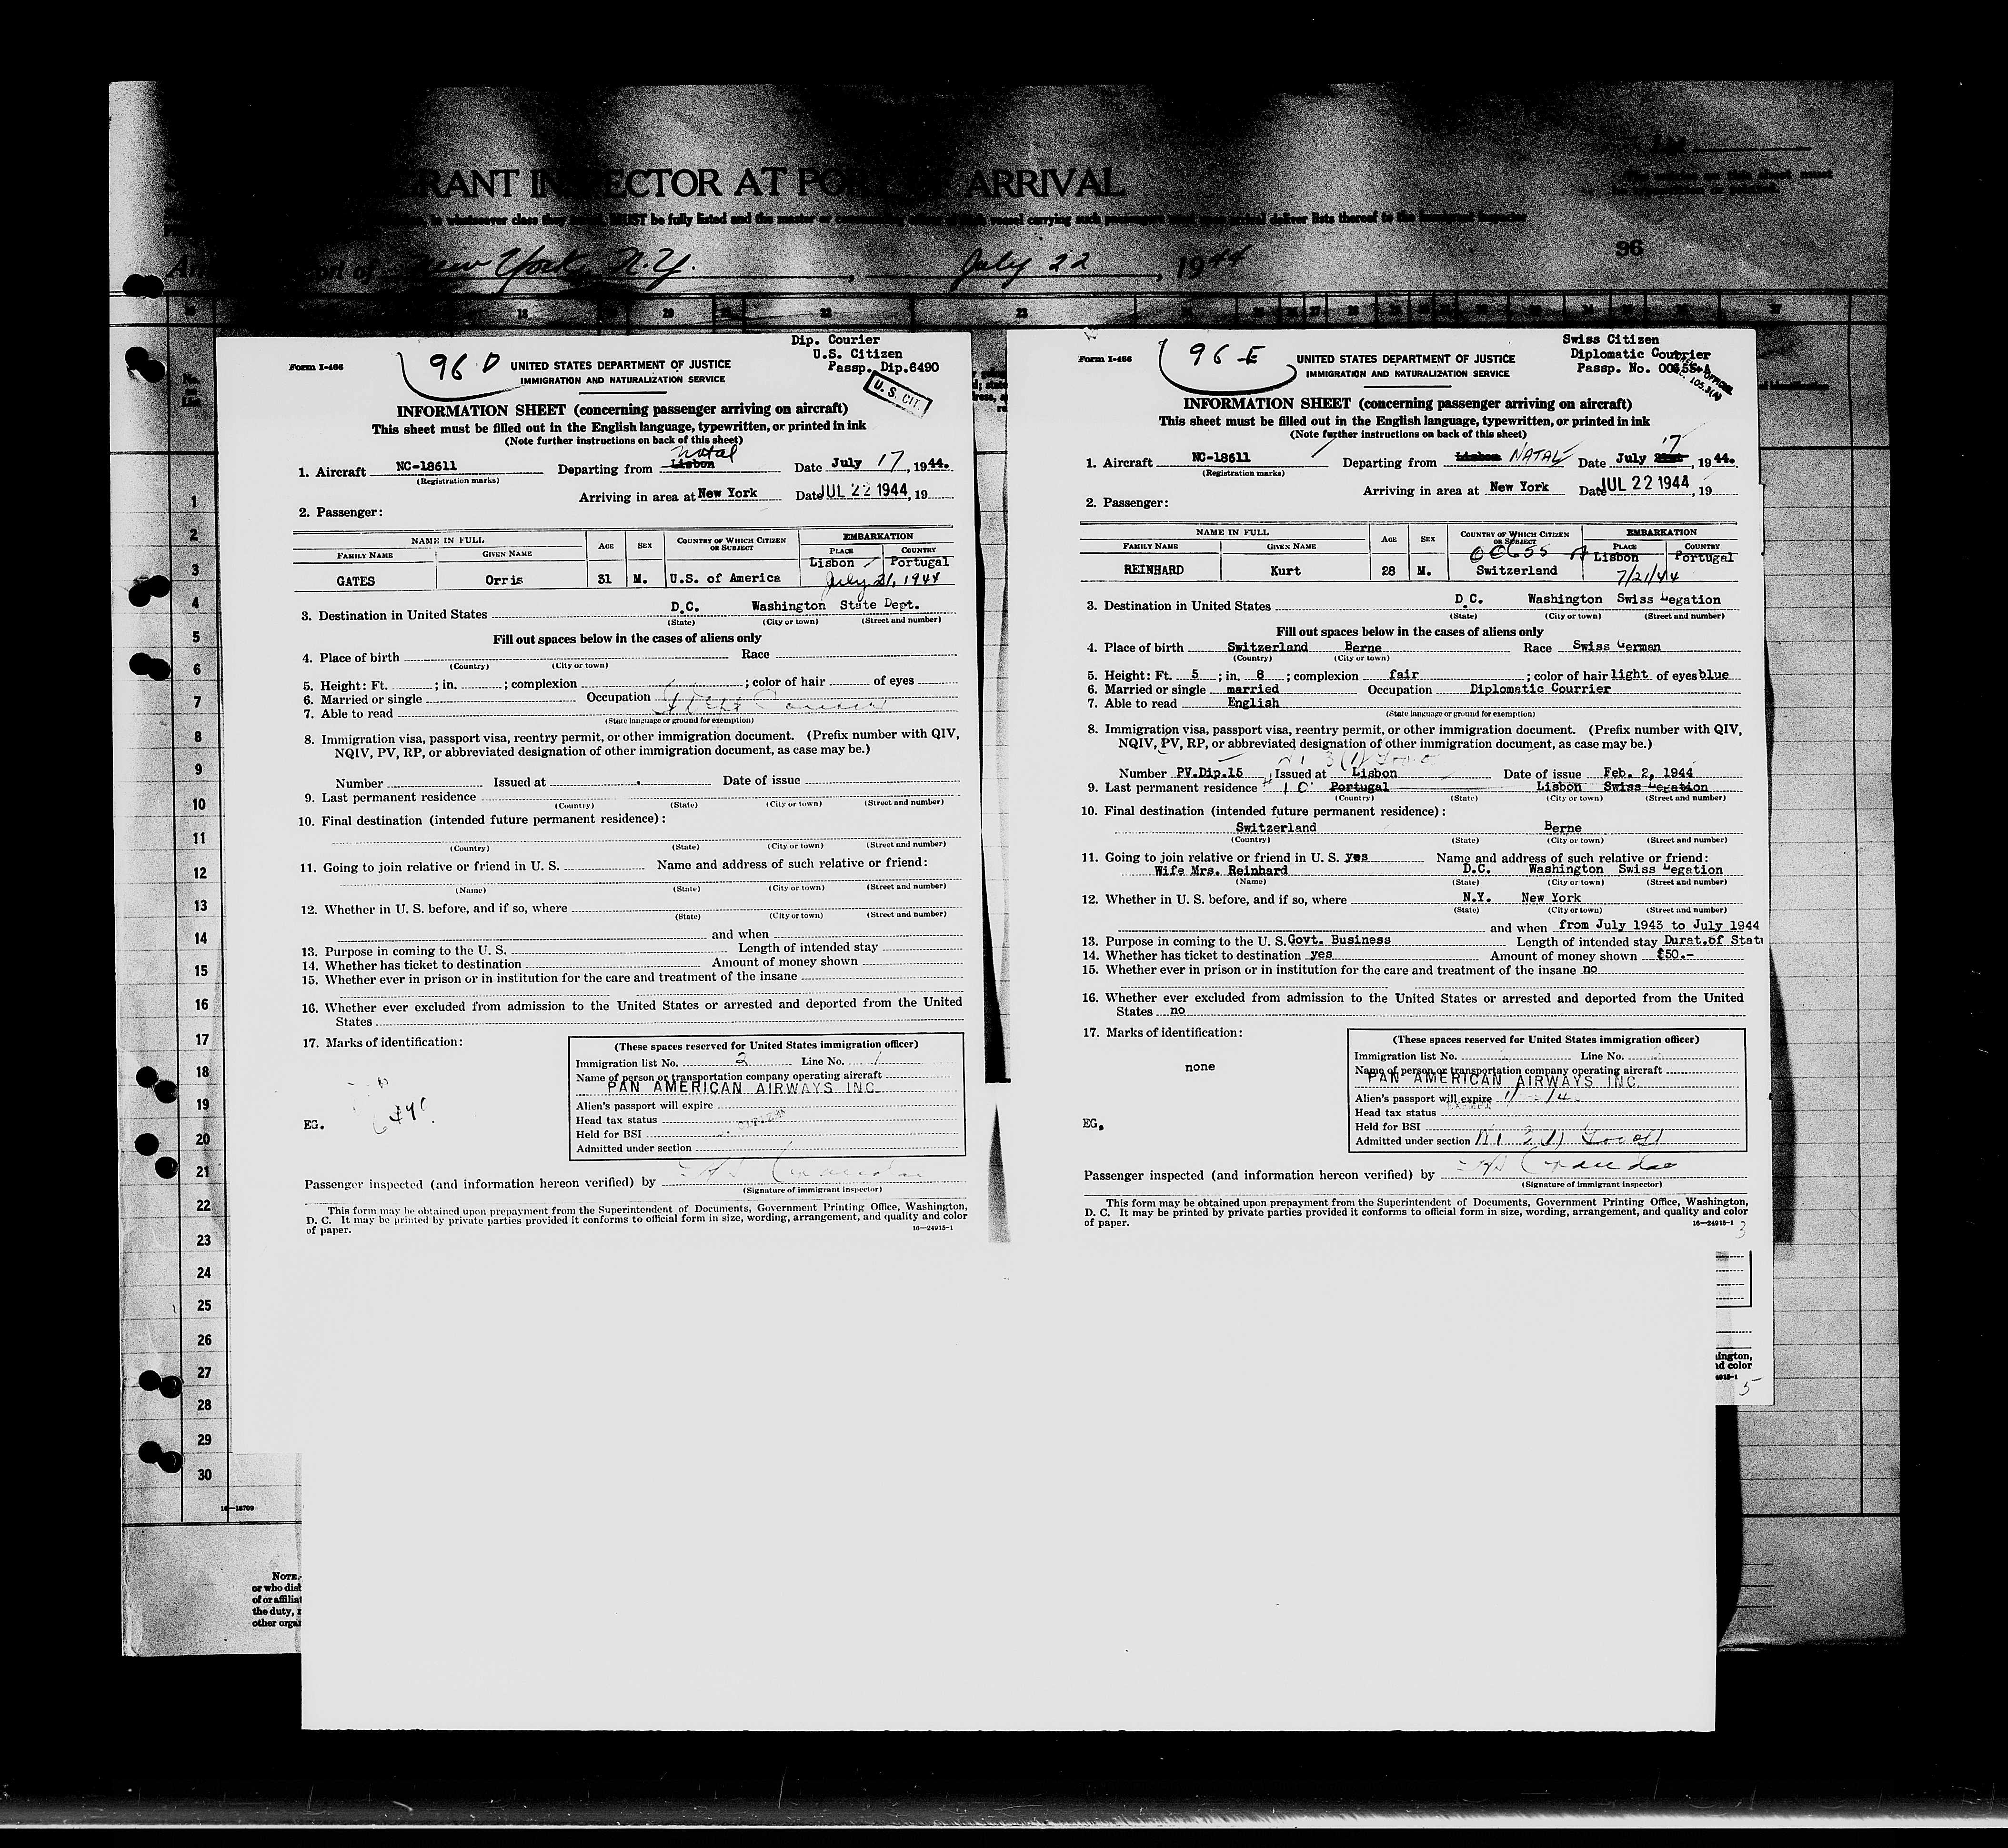 GRANT IN ECTOR AT PO ARRIVAL
in whatsoever class they MUST be fully listed and the master or vessel carrying such passengers must upon arrival deliver lists thereof to the immigrant inspector
ort of New York, N.Y. , July 22 , 1944
96
18 20 22 23
Form I-466
96 D
UNITED STATES DEPARTMENT OF JUSTICE
IMMIGRATION AND NATURALIZATION SERVICE
Dip. Courier
U.S. Citizen
Passp. Dip.6490
U. S. CIT.
INFORMATION SHEET (concerning passenger arriving on aircraft)
This sheet must be filled out in the English language, typewritten, or printed in ink
(Note further instructions on back of this sheet)
Natal
1. Aircraft NC-18611 Departing from Lisbon Date July 17, 1944.
(Registration marks)
Arriving in area at New York Date JUL 22 1944, 19
2. Passenger:
NAME IN FULL AGE SEX COUNTRY OF WHICH CITIZEN OR SUBJECT EMBARKATION
FAMILY NAME GIVEN NAME PLACE COUNTRY
Lisbon Portugal
GATES Orris 31 M. U.S. of America July 21, 1944
3. Destination in United States D.C. Washington State Dept.
(State) (City or town) (Street and number)
Fill out spaces below in the cases of aliens only
4. Place of birth Race
(Country) (City or town)
5. Height: Ft. ; in. ; complexion ; color of hair of eyes
6. Married or single Occupation
7. Able to read
(State language or ground for exemption)
8. Immigration visa, passport visa, reentry permit, or other immigration document. (Prefix number with QIV,
NQIV, PV, RP, or abbreviated designation of other immigration document, as case may be.)
Number Issued at Date of issue
9. Last permanent residence
(Country) (State) (City or town) (Street and number)
10. Final destination (intended future permanent residence):
(Country) (State) (City or town) (Street and number)
11. Going to join relative or friend in U. S. Name and address of such relative or friend:
(Name) (State) (City or town) (Street and number)
12. Whether in U. S. before, and if so, where
(State) (City or town) (Street and number)
and when
13. Purpose in coming to the U. S. Length of intended stay
14. Whether has ticket to destination Amount of money shown
15. Whether ever in prison or in institution for the care and treatment of the insane
16. Whether ever excluded from admission to the United States or arrested and deported from the United
States
17. Marks of identification:
(These spaces reserved for United States immigration officer)
Immigration list No. 2 Line No. 1
Name of person or transportation company operating aircraft
PAN AMERICAN AIRWAYS INC.
Alien's passport will expire
Head tax status
Held for BSI
Admitted under section
EG.
Passenger inspected (and information hereon verified) by
(Signature of immigrant inspector)
This form may be obtained upon prepayment from the Superintendent of Documents, Government Printing Office, Washington,
D. C. It may be printed by private parties provided it conforms to official form in size, wording, arrangement, and quality and color
of paper. 16—24915-1
Form I-466
96-E
UNITED STATES DEPARTMENT OF JUSTICE
IMMIGRATION AND NATURALIZATION SERVICE
Swiss Citizen
Diplomatic Courrier
Passp. No. 00655-A
INFORMATION SHEET (concerning passenger arriving on aircraft)
This sheet must be filled out in the English language, typewritten, or printed in ink
(Note further instructions on back of this sheet)
17
1. Aircraft NC-18611 Departing from Lisbon NATAL Date July 21st, 1944.
(Registration marks)
Arriving in area at New York Date JUL 22 1944, 19
2. Passenger:
NAME IN FULL AGE SEX COUNTRY OF WHICH CITIZEN OR SUBJECT EMBARKATION
FAMILY NAME GIVEN NAME PLACE COUNTRY
00655 A Lisbon Portugal
REINHARD Kurt 28 M. Switzerland 7/21/44
3. Destination in United States D.C. Washington Swiss Legation
(State) (City or town) (Street and number)
Fill out spaces below in the cases of aliens only
4. Place of birth Switzerland Berne Race Swiss German
(Country) (City or town)
5. Height: Ft. 5 ; in. 8 ; complexion fair ; color of hair light of eyes blue
6. Married or single married Occupation Diplomatic Courrier
7. Able to read English
(State language or ground for exemption)
8. Immigration visa, passport visa, reentry permit, or other immigration document. (Prefix number with QIV,
NQIV, PV, RP, or abbreviated designation of other immigration document, as case may be.)
Number PV.Dip.15 Issued at Lisbon Date of issue Feb. 2, 1944
9. Last permanent residence Portugal Lisbon Swiss Legation
(Country) (State) (City or town) (Street and number)
10. Final destination (intended future permanent residence):
Switzerland Berne
(Country) (State) (City or town) (Street and number)
11. Going to join relative or friend in U. S. yes Name and address of such relative or friend:
Wife Mrs. Reinhard D.C. Washington Swiss Legation
(Name) (State) (City or town) (Street and number)
12. Whether in U. S. before, and if so, where N.Y. New York
(State) (City or town) (Street and number)
and when from July 1943 to July 1944
13. Purpose in coming to the U. S. Govt. Business Length of intended stay Durat.of Stat
14. Whether has ticket to destination yes Amount of money shown $50.-
15. Whether ever in prison or in institution for the care and treatment of the insane no
16. Whether ever excluded from admission to the United States or arrested and deported from the United
States no
17. Marks of identification:
none
(These spaces reserved for United States immigration officer)
Immigration list No. Line No.
Name of person or transportation company operating aircraft
PAN AMERICAN AIRWAYS INC.
Alien's passport will expire
Head tax status
Held for BSI
Admitted under section
EG.
Passenger inspected (and information hereon verified) by
(Signature of immigrant inspector)
This form may be obtained upon prepayment from the Superintendent of Documents, Government Printing Office, Washington,
D. C. It may be printed by private parties provided it conforms to official form in size, wording, arrangement, and quality and color
of paper. 16—24915-1 3
1
2
3
4
5
6
7
8
9
10
11
12
13
14
15
16
17
18
19
20
21
22
23
24
25
26
27
28
29
30
ington,
nd color
4915-1
5
16—18709
NOTE.
or who dist
of or affiliat
the duty, r
other orga